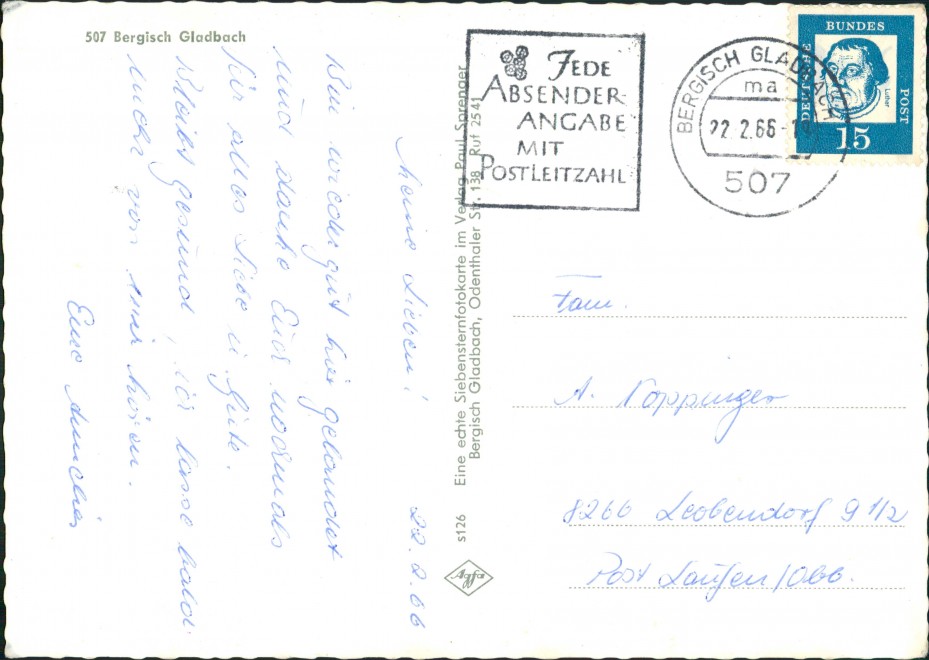 507 Bergisch Gladbach
Meine Lieben! 22.2.66
Bin wieder gut hier gelandet
und danke Euch nochmals
für alles Liebe u. Gute.
Bleibt gesund, ich lasse bald
wieder von mir hören.
Eure Annelies
Eine echte Siebensternfotokarte im Verlag Paul Sprenger
Bergisch Gladbach, Odenthaler Str. 138 Ruf 2541
s126
Agfa
JEDE
ABSENDER-
ANGABE
MIT
POSTLEITZAHL
BERGISCH GLADBACH
ma
22.2.66-18
507
DEUTSCHE
BUNDES
POST
Luther
15
Fam.
A. Noppinger
8266 Leobendorf 9 1/2
Post Laufen/Obb.